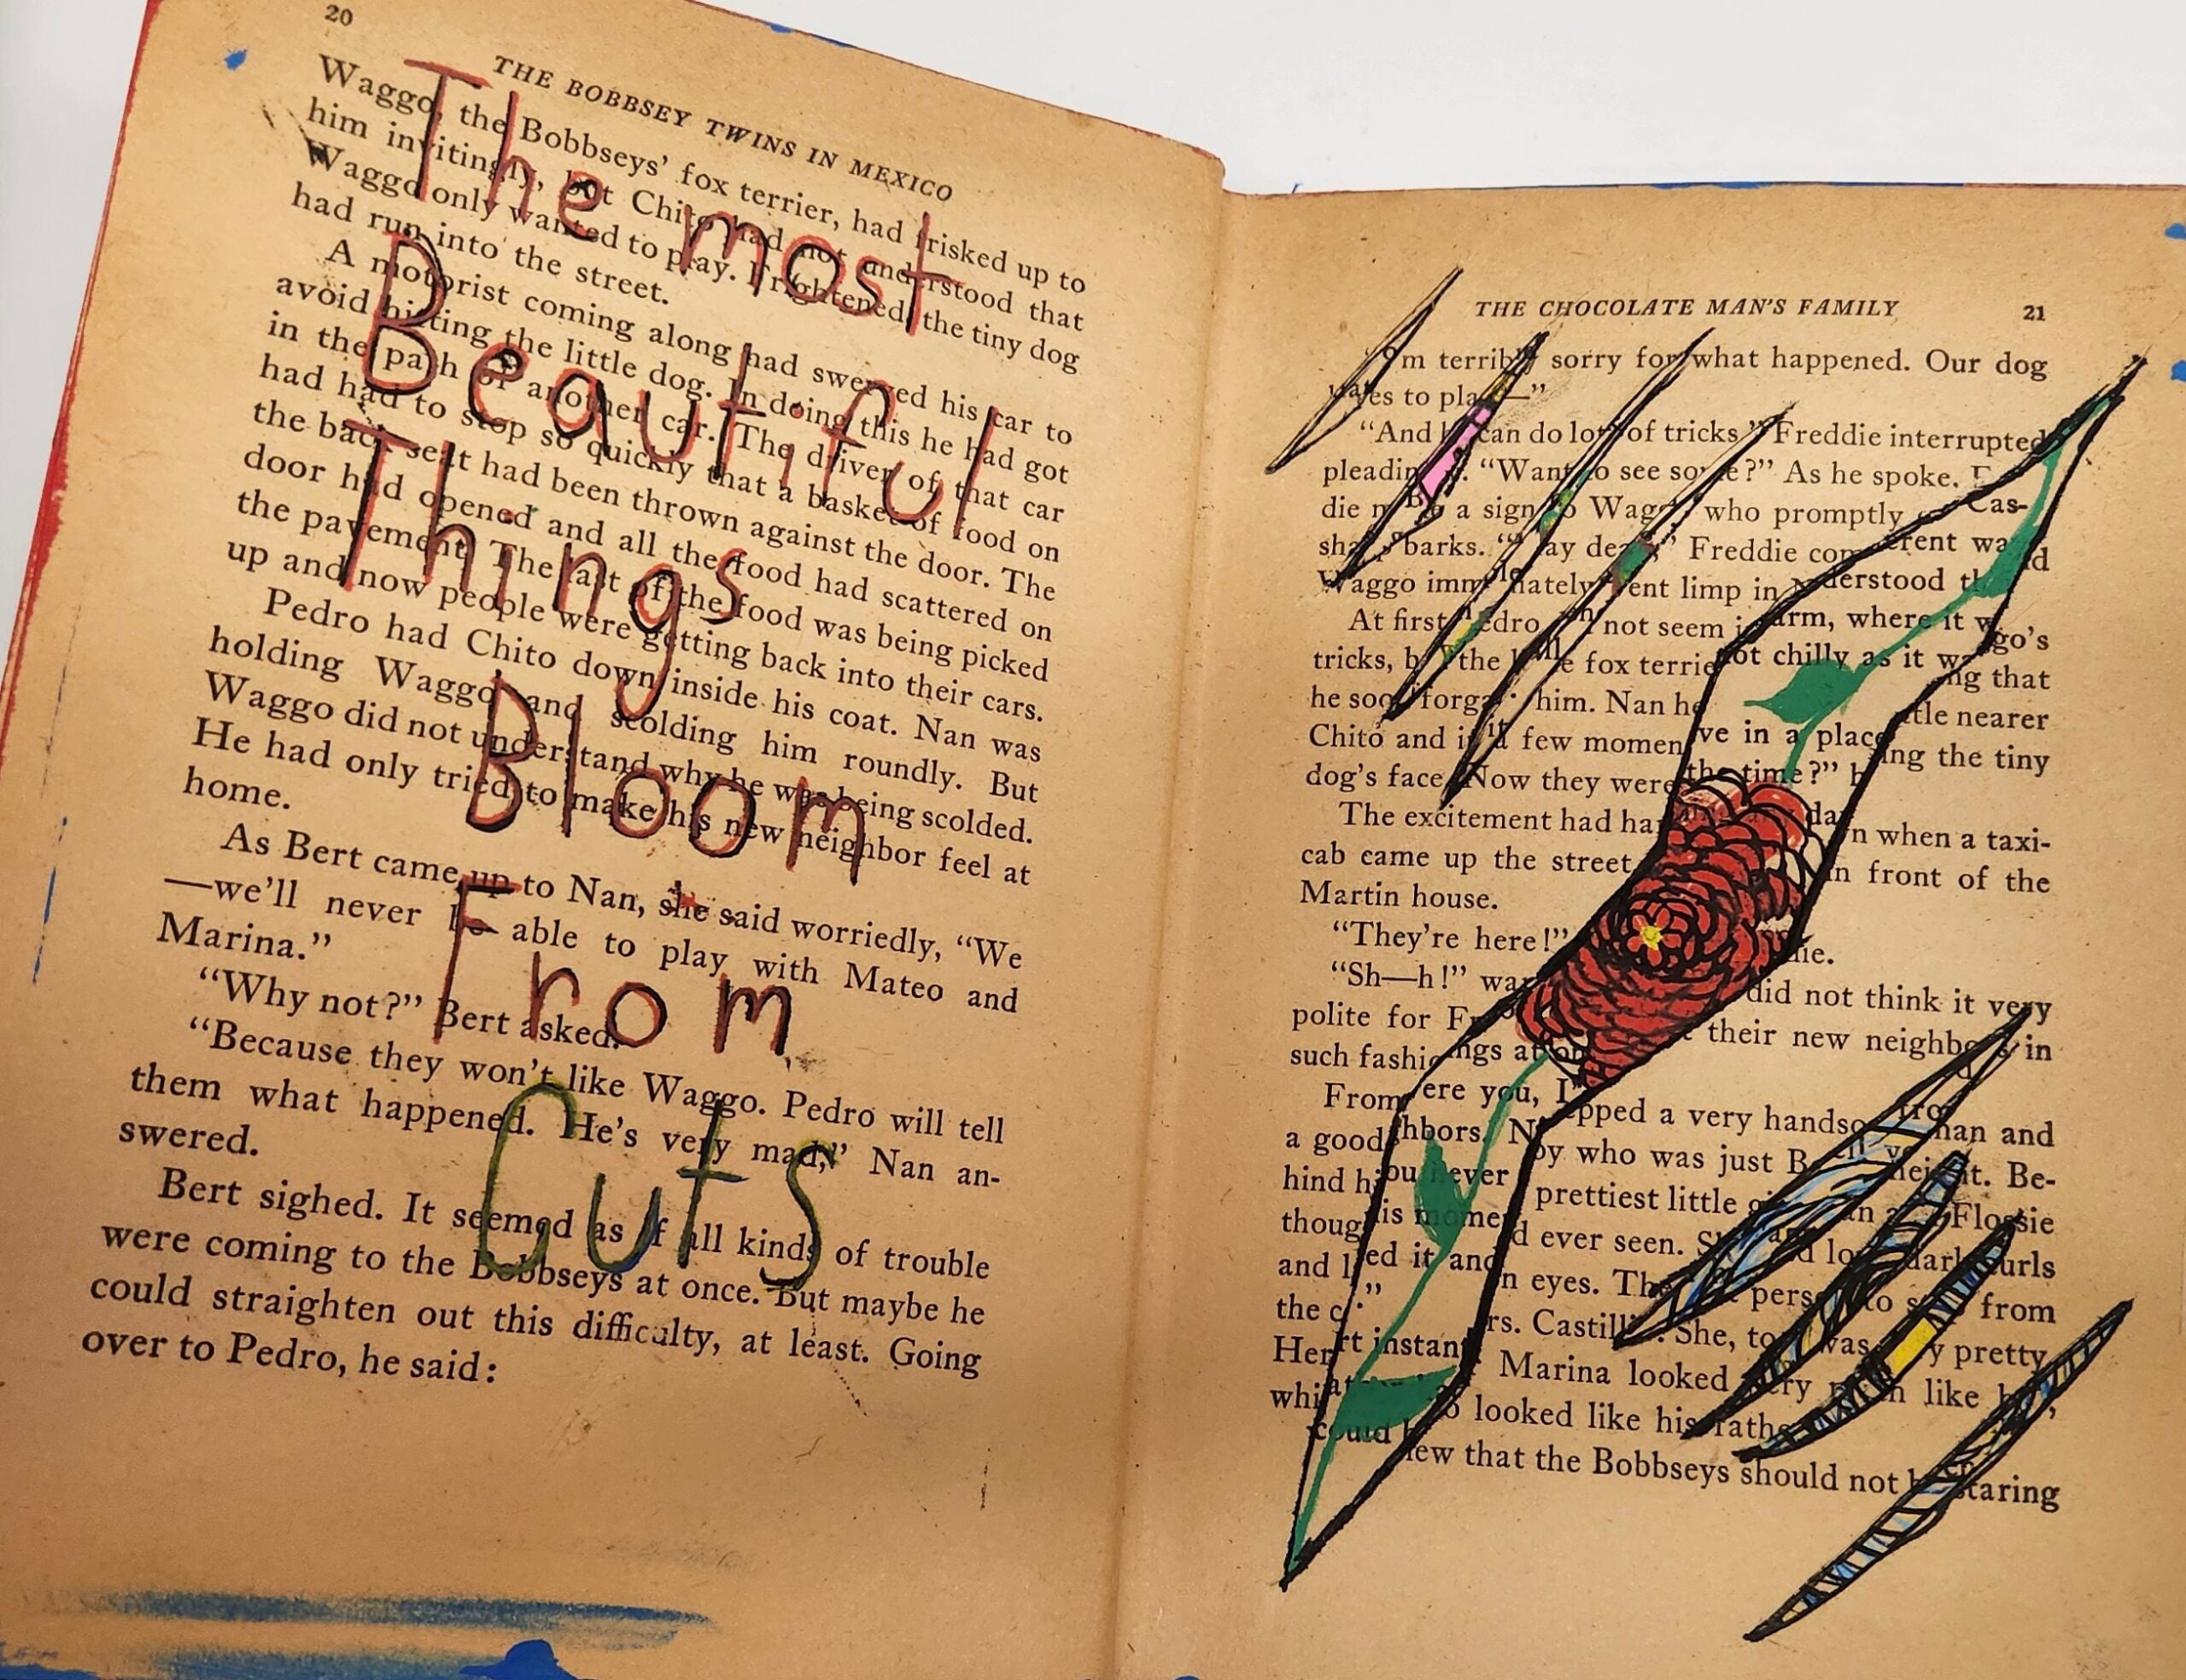 20
THE BOBBSEY TWINS IN MEXICO
Waggo, the Bobbseys' fox terrier, had frisked up to
him invitingly, but Chito had not understood that
Waggo only wanted to play. Frightened, the tiny dog
had run into the street.
A motorist coming along had swerved his car to
avoid hitting the little dog. In doing this he had got
in the path of another car. The driver of that car
had had to stop so quickly that a basket of food on
the back seat had been thrown against the door. The
door had opened and all the food had scattered on
the pavement. The last of the food was being picked
up and now people were getting back into their cars.
Pedro had Chito down inside his coat. Nan was
holding Waggo and scolding him roundly. But
Waggo did not understand why he was being scolded.
He had only tried to make his new neighbor feel at
home.
As Bert came up to Nan, she said worriedly, "We
—we'll never be able to play with Mateo and
Marina."
"Why not?" Bert asked.
"Because they won't like Waggo. Pedro will tell
them what happened. He's very mad," Nan an-
swered.
Bert sighed. It seemed as if all kinds of trouble
were coming to the Bobbseys at once. But maybe he
could straighten out this difficulty, at least. Going
over to Pedro, he said:
The most
Beautiful
Things
Bloom
From
Cuts
THE CHOCOLATE MAN'S FAMILY 21
"I'm terribly sorry for what happened. Our dog
likes to play—"
"And he can do lots of tricks," Freddie interrupted
"Want to see some?" As he spoke, Cas-
die a sign to Waggo who promptly
barks. "Play dead," Freddie erent
Waggo immediately went limp in derstood
At first Pedro not seem arm, where it
tricks, the fox terrier not chilly as it go's
he soon forgave him. Nan ng that
Chito and in a few moments ve in a place nearer
dog's face. Now they were the time?" ing the tiny
The excitement had when a taxi-
cab came up the street in front of the
Martin house.
"They're here!" die.
"Sh—h!" did not think it very
polite for their new neighbors in
such ings
From ere you, pped a very handsome man and
a good hbors. who was just height. Be-
hind never prettiest little Flossie
though his d ever seen. dark curls
and ed it and n eyes. The person to from
the rs. Castilla. She, too, was pretty
Her instant Marina looked very much like
looked like his
could ew that the Bobbseys should not be staring